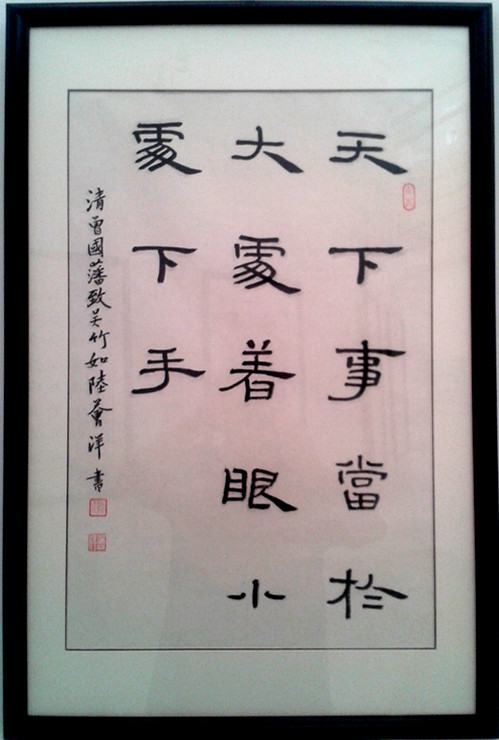 天下事當於
大處着眼小
處下手
清曾國藩致吴竹如陸薈洋書